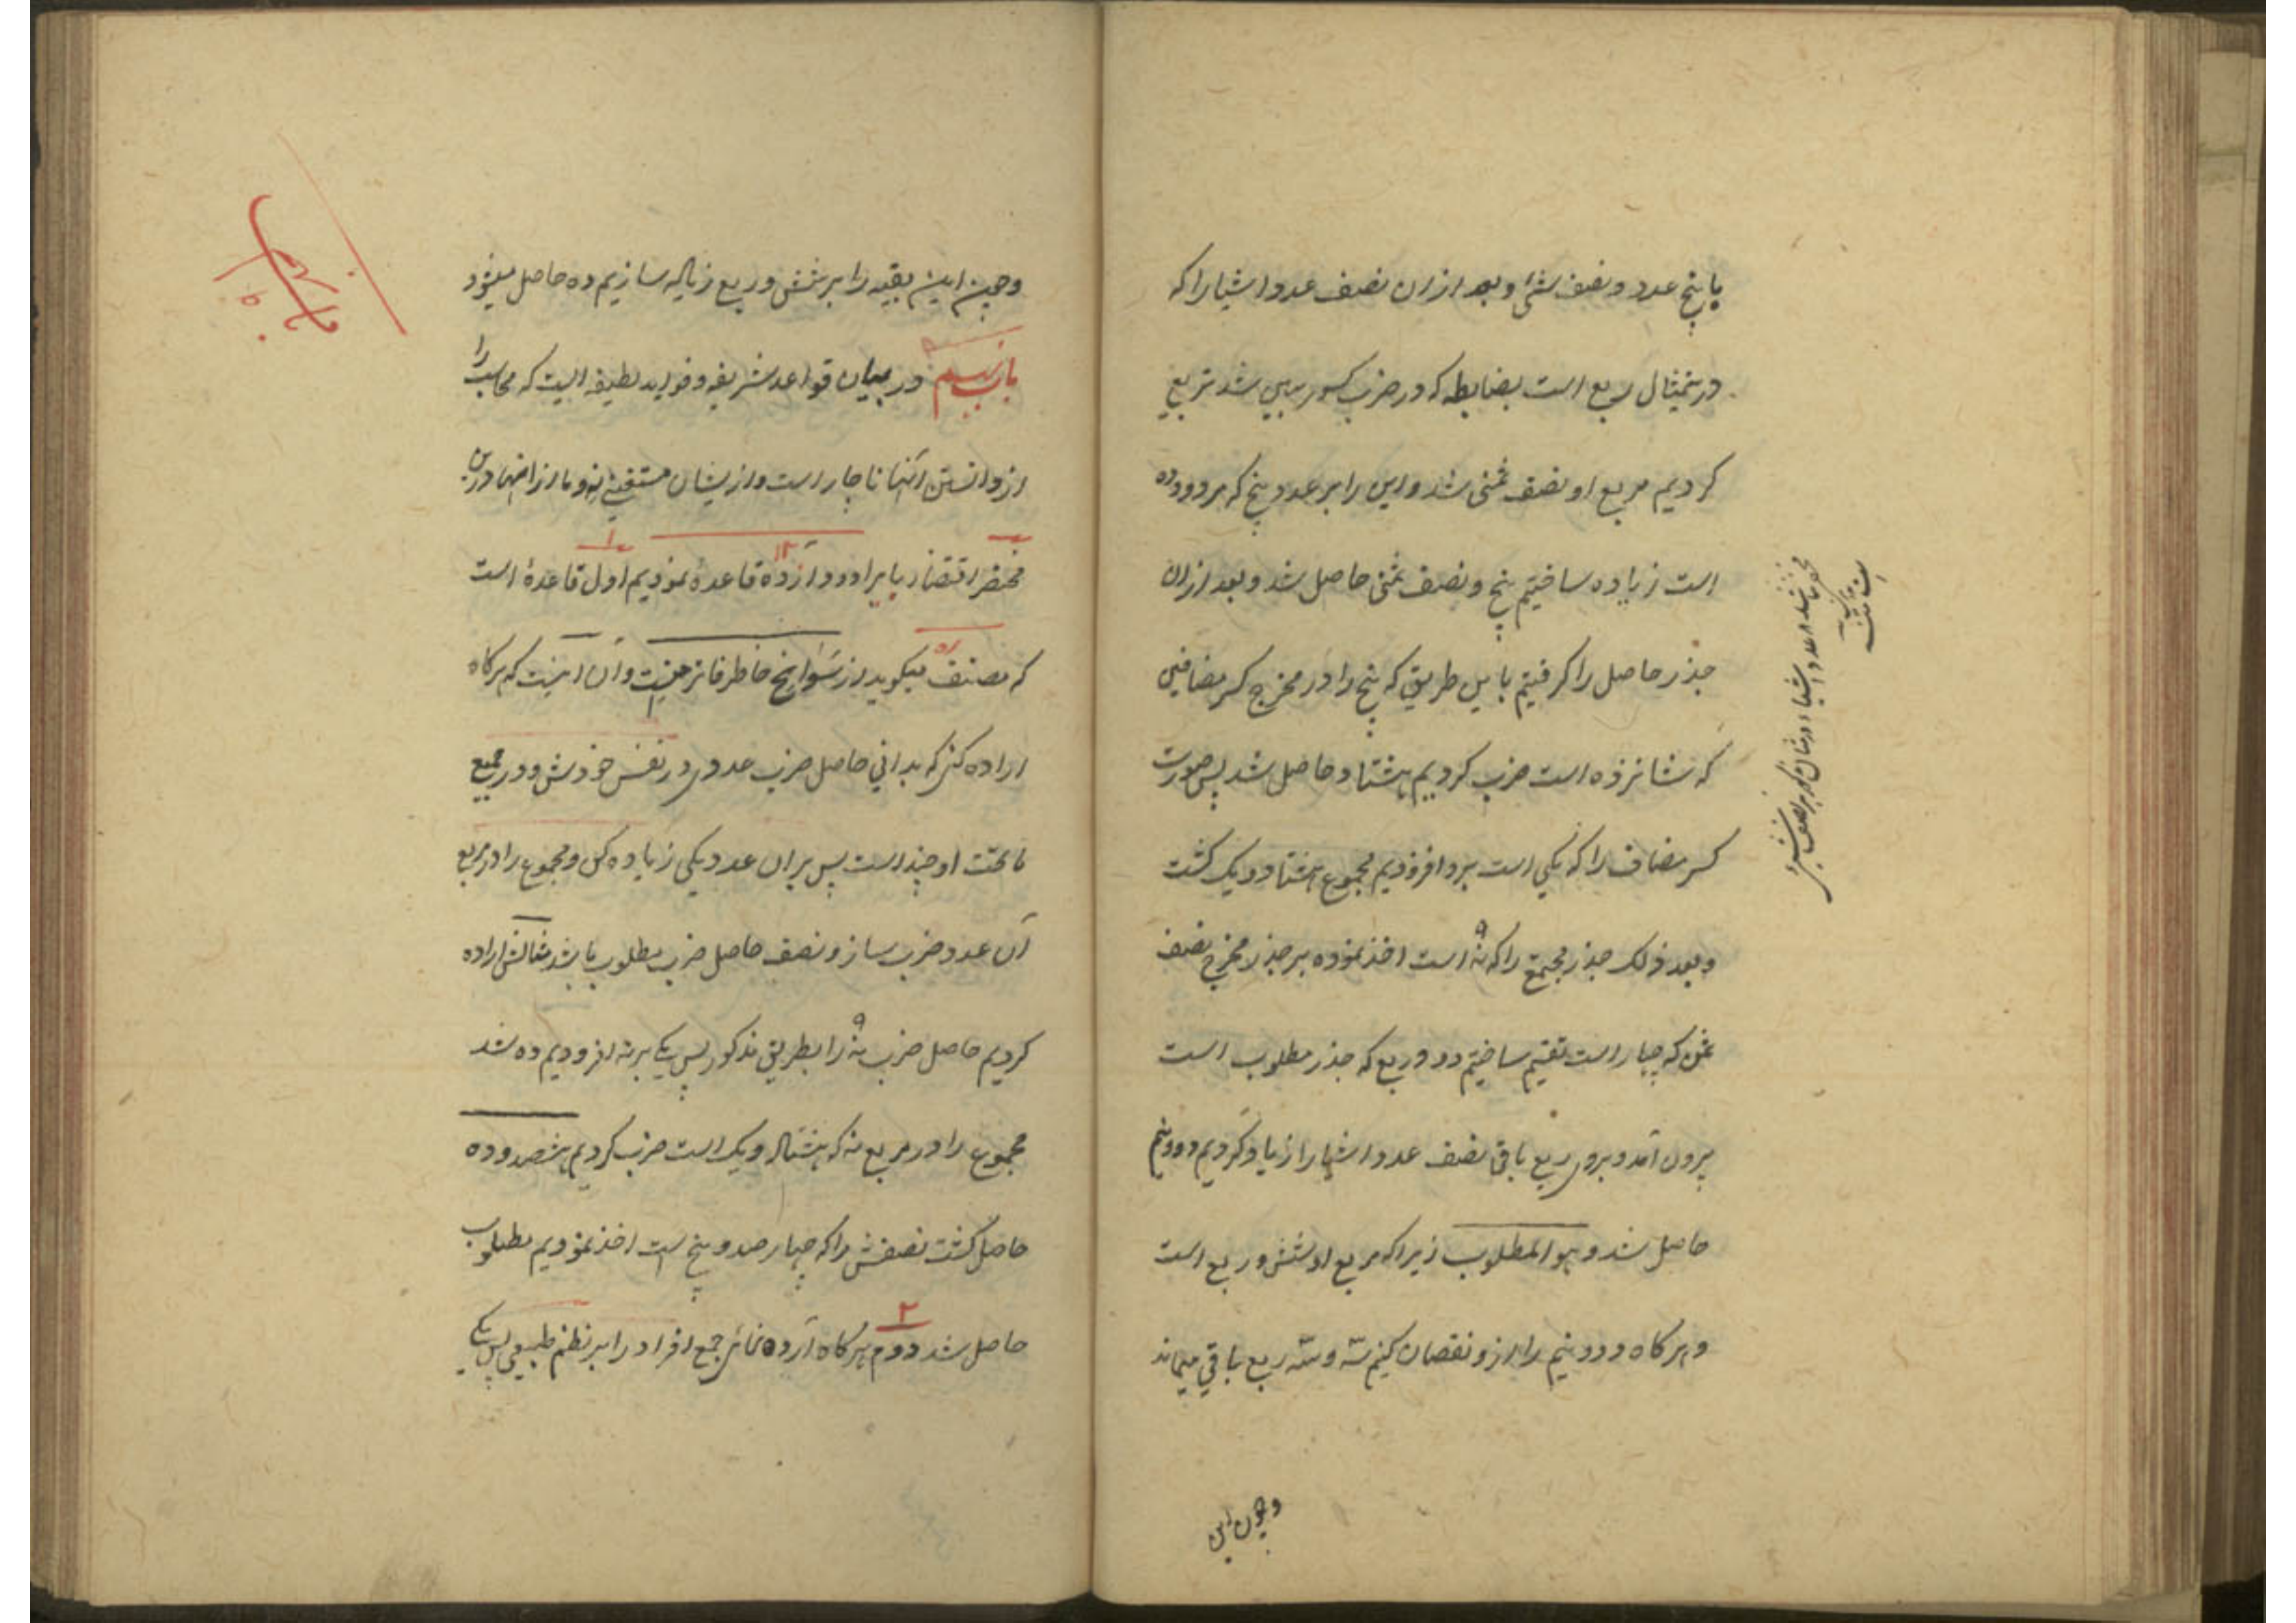 با پنج عدد و نصف شئ و بعد ازان نصف عدد اشیا را که
درینمثال ربع است بضابطه که در ضرب کسور مبین شد تربیع
کردیم مربع او نصف ثمنی شد و این را بر عدد پنج که مردود ده
است زیاده ساختیم پنج و نصف ثمنی حاصل شد و بعد ازان
جذر حاصل را گرفتیم باین طریق که پنج را در مخرج کسر مضافین
که شانزده است ضرب کردیم هشتاد حاصل شد پس صورت
کسر مضاف را که یکی است برو افزودیم مجموع هشتاد و یک گشت
و بعد ذلک جذر مجتمع را که نه ۹ است اخذ نموده بر جذر مخرج نصف
ثمن که چهار است تقسیم ساختیم دو و ربع که جذر مطلوب است
بیرون آمد و بروی ربع باقی نصف عدد اشیا را زیاد کردیم دو و نیم
حاصل شد و هو المطلوب زیرا که مربع او شش و ربع است
و هر گاه دو و نیم را ازو نقصان کنیم سه و سه ربع باقی میماند
وچون این
وچون این بقیه را بر شش و ربع زیاده سازیم ده حاصل میشود
باب نهم ۹ در بیان قواعد شریفه و فواید لطیفه ایست که محاسب را
از دانستن آنها ناچار است و ازیشان مستغنی نه و ما از انها درین
مختصر اقتصار بایراد دوازده ۱۲ قاعده نمودیم اول ۱ قاعدهٔ است
که مصنف میگوید از سوانح خاطر فاتر منیست و آن اینست که هرگاه
اراده کنی که بدانی حاصل ضرب عددی در نفس خودش و در جمیع
ما تحت او چند است پس بران عدد یکی زیاده کن و مجموع را در مربع
آن عدد ضرب ساز و نصف حاصل ضرب مطلوب باشد مثالش اراده
کردیم حاصل ضرب نه ۹ را بطریق مذکور پس یکی بر نه افزودیم ده شد
مجموع را در مربع نه که هشتاد و یک است ضرب کردیم هشصد و ده
حاصل گشت نصفش را که چهار صد و پنج است اخذ نمودیم مطلوب
حاصل شد دوم ۲ هر گاه اراده نمائی جمع افراد را بر نظم طبیعی پس یکی